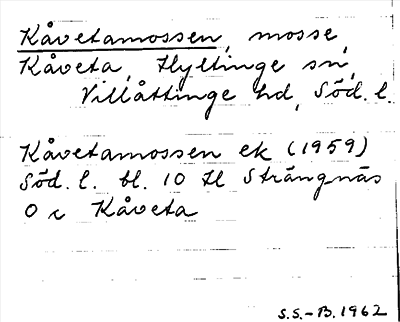 Kåvetamossen, mosse,
Kåveta, Hyltinge sn,
Villåttinge hd, Söd. l.
Kåvetamossen ek (1959)
Söd. l. bl. 10 Il Strängnäs
O r Kåveta
S.S.-B. 1962